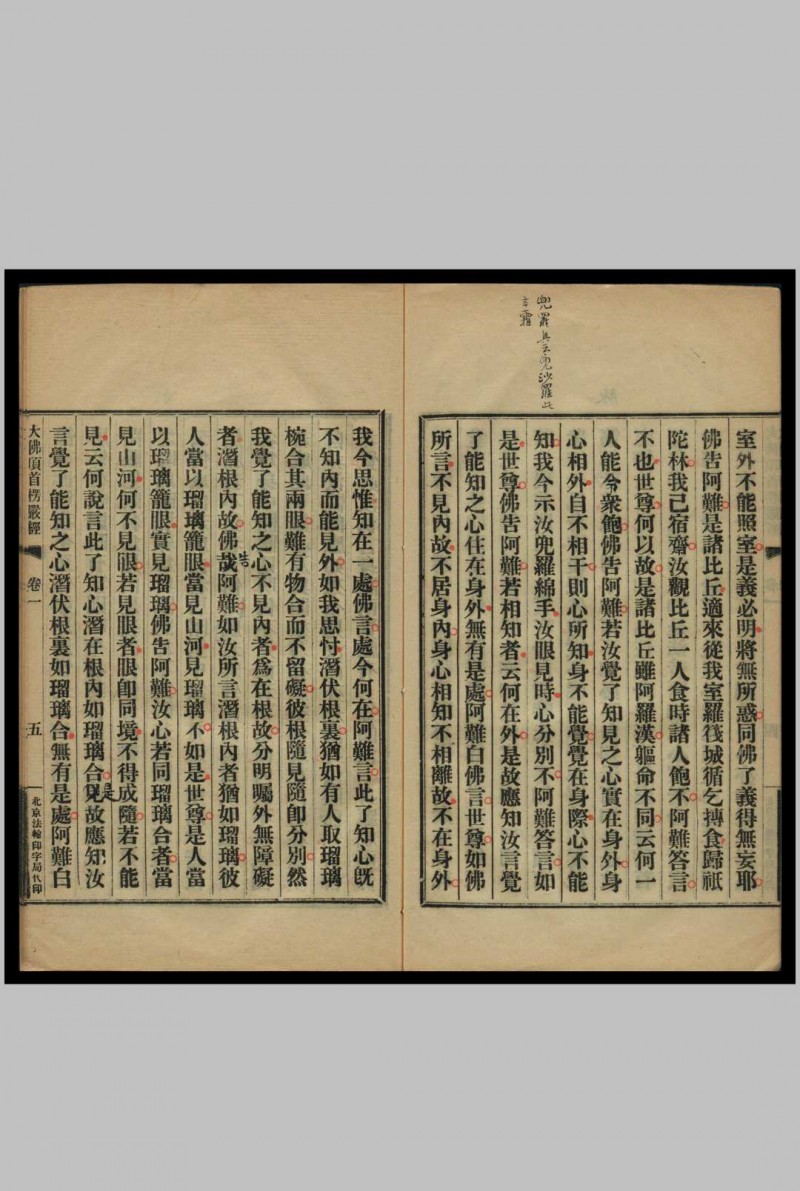 兜羅具云兜沙羅此
言霜
室外不能照室是義必明將無所惑同佛了義得無妄耶
佛告阿難是諸比丘適來從我室羅筏城循乞摶食歸祇
陀林我已宿齋汝觀比丘一人食時諸人飽不阿難答言
不也世尊何以故是諸比丘雖阿羅漢軀命不同云何一
人能令衆飽佛告阿難若汝覺了知見之心實在身外身
心相外自不相干則心所知身不能覺覺在身際心不能
知我今示汝兜羅綿手汝眼見時心分別不阿難答言如
是世尊佛告阿難若相知者云何在外是故應知汝言覺
了能知之心住在身外無有是處阿難白佛言世尊如佛
所言不見內故不居身內身心相知不相離故不在身外
我今思惟知在一處佛言處今何在阿難言此了知心旣
不知內而能見外如我思忖潛伏根裏猶如有人取瑠璃
椀合其兩眼雖有物合而不留礙彼根隨見隨卽分別然
我覺了能知之心不見內者爲在根故分明矚外無障礙
者潛根內故佛哉阿難如汝所言潛根內者猶如瑠璃彼
告
人當以瑠璃籠眼當見山河見瑠璃不如是世尊是人當
以瑠璃籠眼實見瑠璃佛告阿難汝心若同瑠璃合者當
見山河何不見眼若見眼者眼卽同境不得成隨若不能
見云何說言此了知心潛在根內如瑠璃合是故應知汝
言覺了能知之心潛伏根裏如瑠璃合無有是處阿難白
大佛頂首楞嚴經 卷一 五 北京法輪印字局代印